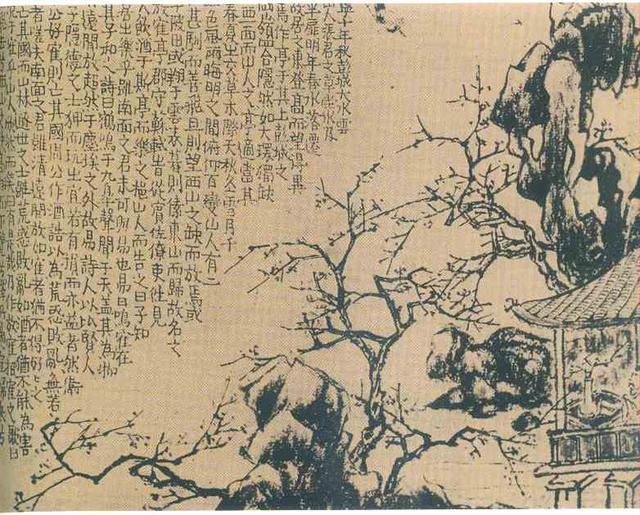 十年秋彭城大水雲
山人張君之草堂水及
半扉明年春水落遷
居之東登高而望得異
焉作亭于其上彭城之
岡嶺四合隱然如大環獨缺
西一面而山人之亭適當其
春夏之交草木際天秋冬雪月千
一色風雨晦明之間俯仰百變山人有二
其馴而善飛旦則望西山之缺而放焉或
于陂田或翔于雲表暮則傃東山而歸故名之
放隺亭郡守蘇軾時從賓佐僚吏往見
人飲酒于斯亭而樂之挹山人而告之曰子知
居之樂乎雖南面之君未可與易也易曰鳴隺在
其子和之詩曰鶴鳴于九皋聲聞于天蓋其為物
遠閒放超然于塵埃之外故易詩人以比賢人
子隱德之士狎而玩之宜若有益而無損者然衛
公好隺則亡其國周公作酒誥以為荒惑敗亂無若
者嗟夫南面之君雖清遠閒放如隺者猶不得好之
亡其國而山林遯世之士雖荒惑敗亂如酒者猶不能為害